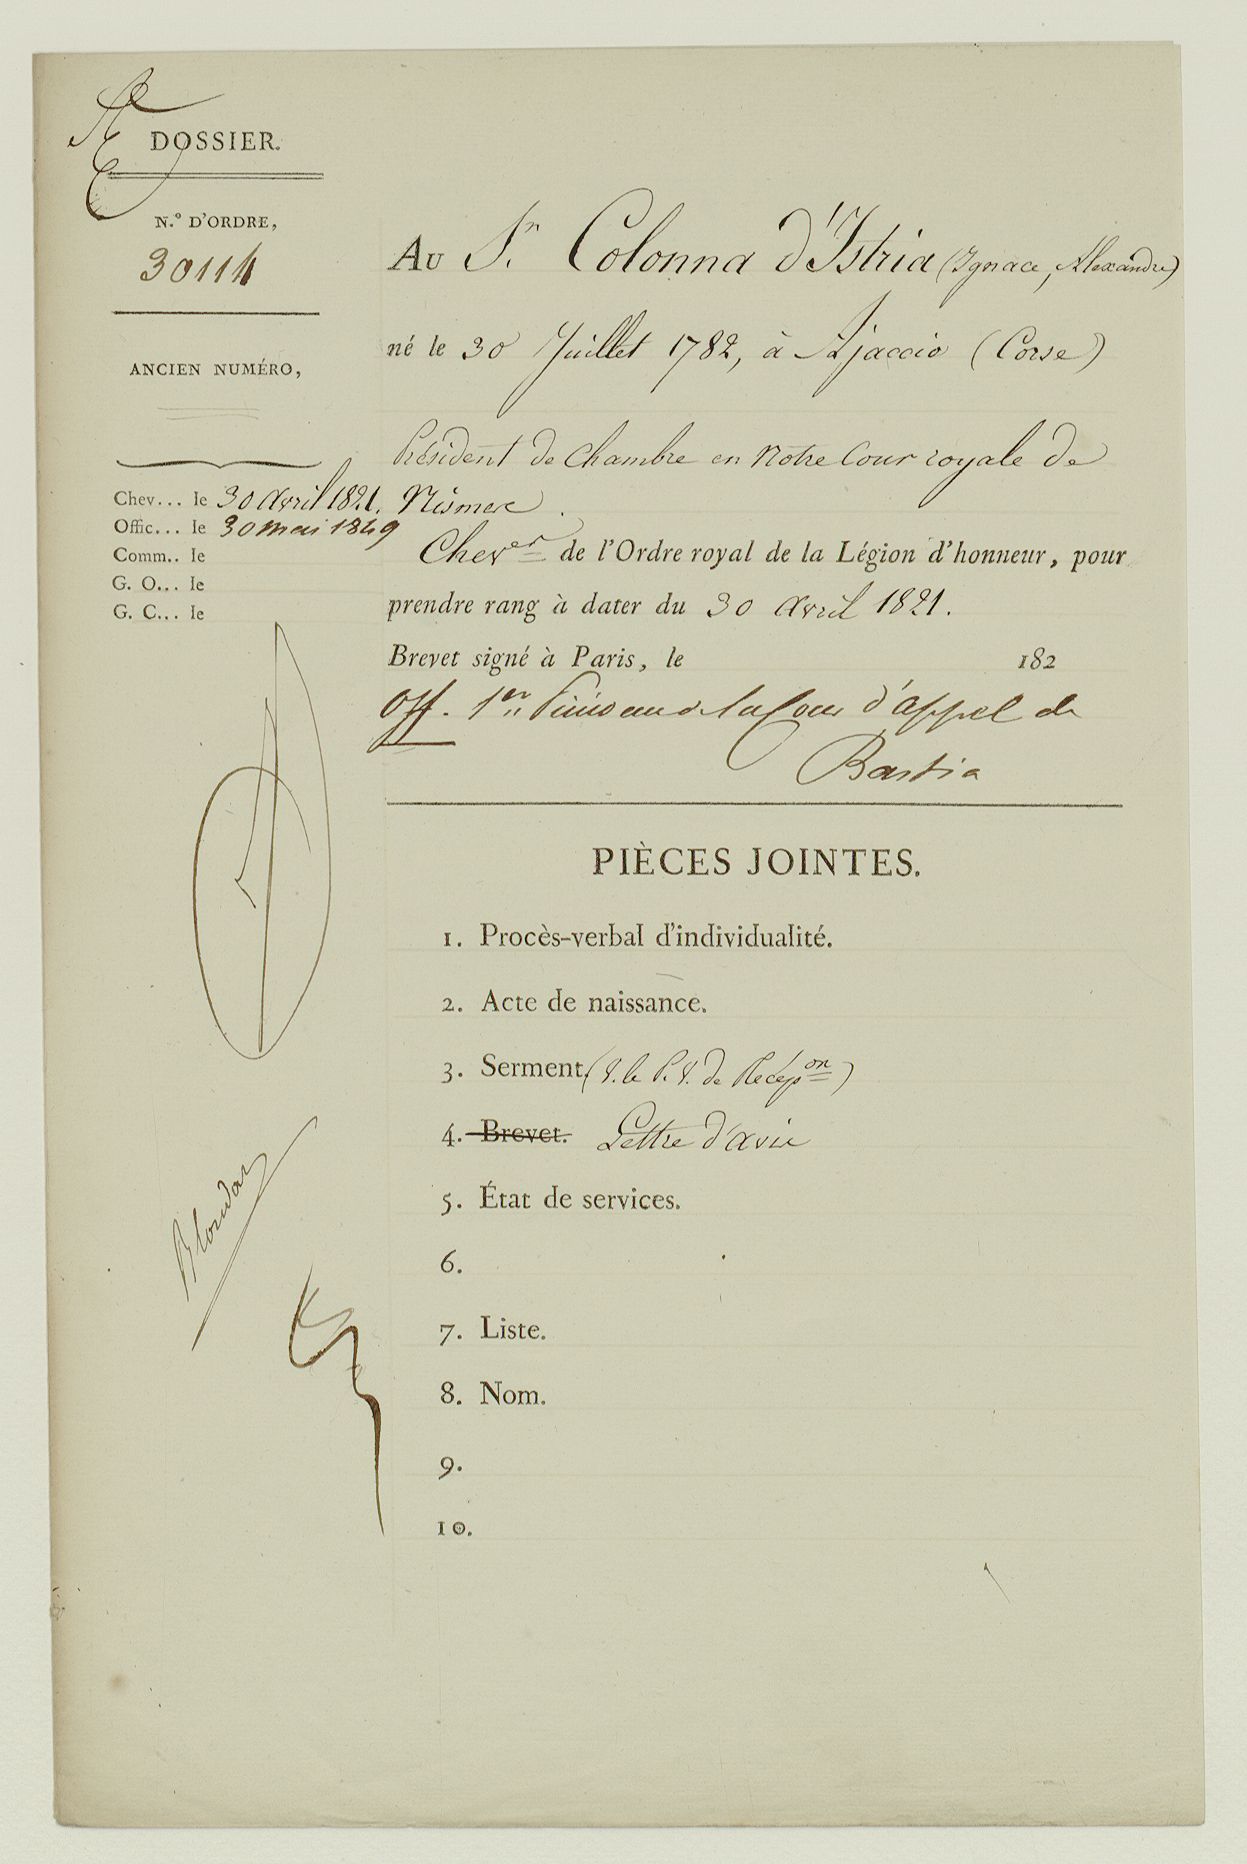 DOSSIER.
N.° D'ORDRE,
30114
ANCIEN NUMÉRO,
Chev... le 30 avril 1821.
Offic... le 30 mai 1849
Comm.. le
G. O... le
G. C... le
AU S.r Colonna d'Istria (Ignace, Alexandre)
né le 30 Juillet 1782, à Ajaccio (Corse)
Président de Chambre en Notre Cour royale de
Nismes.
Chev.er de l'Ordre royal de la Légion d'honneur, pour
prendre rang à dater du 30 avril 1821.
Brevet signé à Paris, le 182
Off. 1er de la Cour d'appel de
Bastia
PIÈCES JOINTES.
1. Procès-verbal d'individualité.
2. Acte de naissance.
3. Serment. (V. le P. V. de Récepon)
4. Brevet. Lettre d'avis
5. État de services.
6.
7. Liste.
8. Nom.
9.
10.